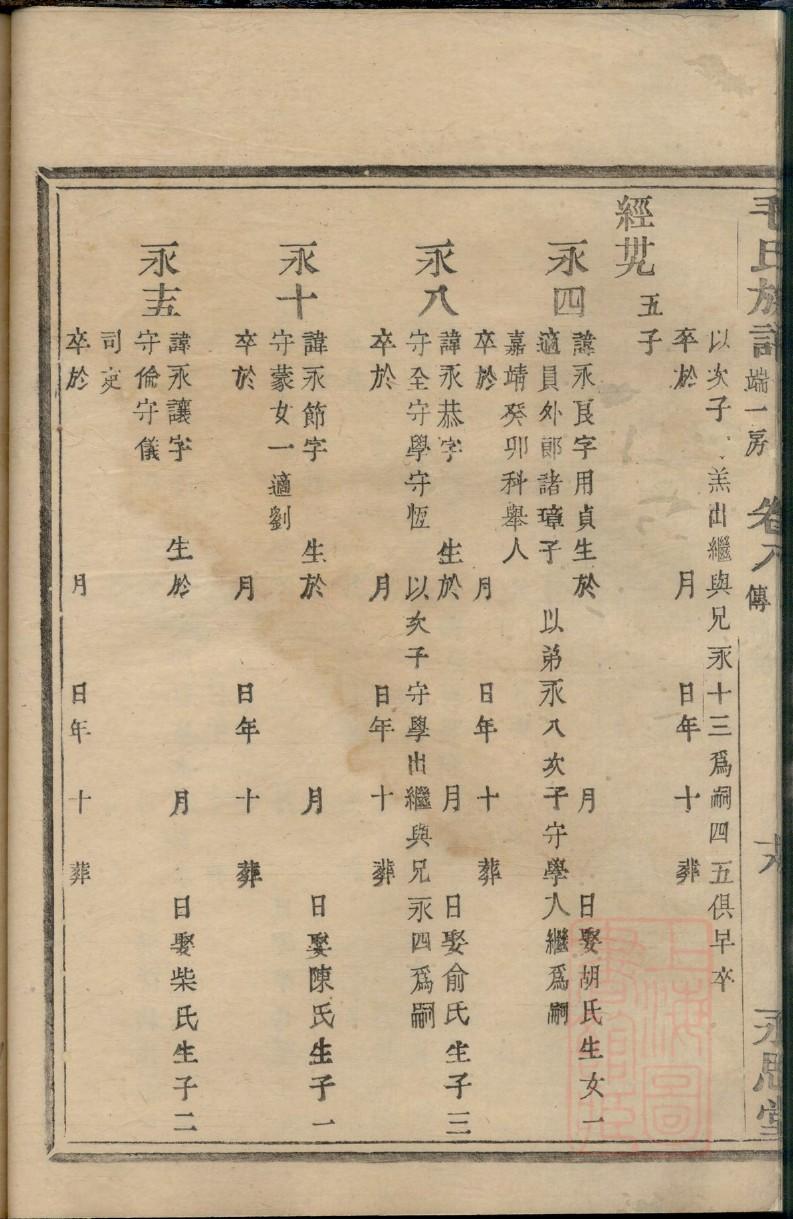 毛氏族譜 端一房 卷八 傳 永思堂
以次子 羔出繼與兄永十三爲嗣四五俱早卒
卒於 月 日年 十 葬
經廿九 五子
永四 諱永良字用貞生於 月 日娶胡氏生女一
適員外郎諸璋子 以弟永八次子守學入繼爲嗣
嘉靖癸卯科舉人
卒於 月 日年 十 葬
永八 諱永恭字 生於 月 日娶俞氏生子三
守全守學守恆 以次子守學出繼與兄永四爲嗣
卒於 月 日年 十 葬
永十 諱永節字 生於 月 日娶陳氏生子一
守蒙女一適劉
卒於 月 日年 十 葬
永十五 諱永讓字 生於 月 日娶柴氏生子二
守倫守儀
司吏
卒於 月 日年 十 葬
上海圖書館藏